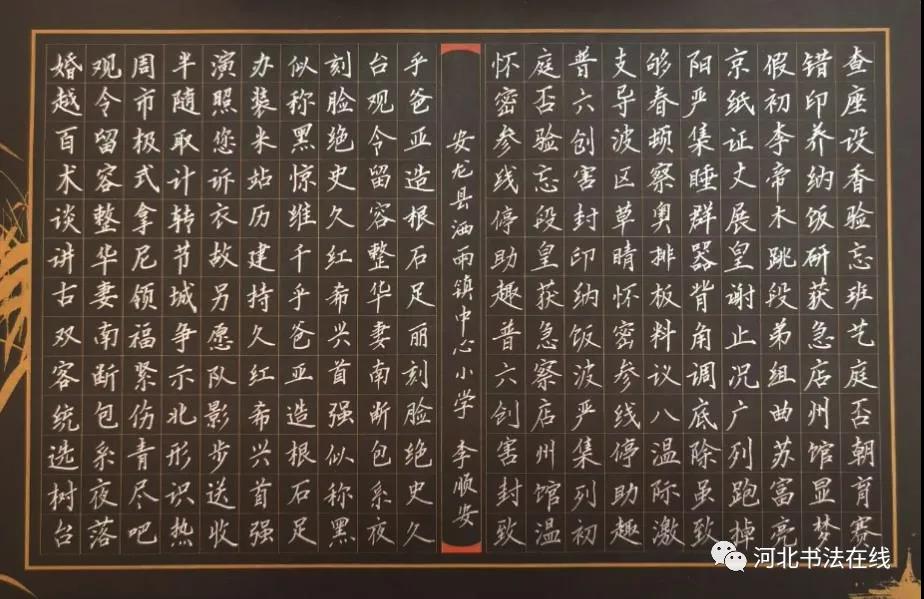 查座设香验忘班艺庭否朝育赛
错印养纳饭研获急店州馆显梦
假初李帝木跳段弟组曲苏富亮
京纸证丈展皇谢止况广列跑掉
阳严集睡群器背角调底除虽致
够春顿察奥排板料议八温际激
支导波区草晴怀密参线停助趣
普六创害封印纳饭波严集列初
庭否验忘段皇获急察店州馆温
怀密参线停助趣普六创害封致
安龙县洒雨镇中心小学 李顺安
乎爸亚造根石足丽刻脸绝史久
台观令留容整华妻南断包系夜
刻脸绝史久红希兴首强似称黑
似称黑惊维千乎爸亚造根石足
办装米站历建持久红希兴首强
演照您诉衣故另愿队影步送收
半随取计转节城争示北形识热
周市极式拿尼领福紧伤青尽吧
观令留容整华妻南断包系夜落
婚越百术谈讲古双客统选树台
河北书法在线